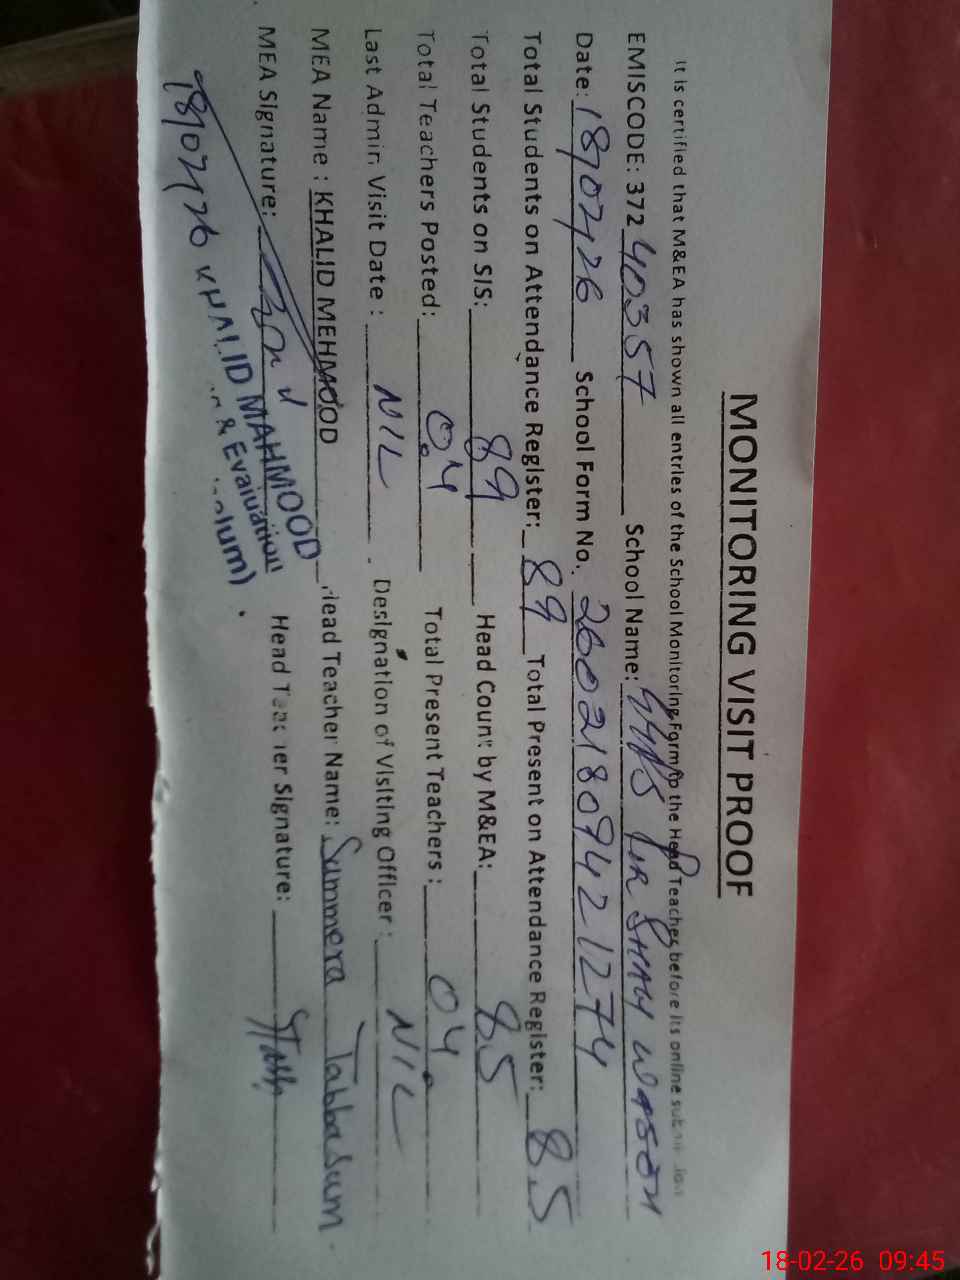 MONITORING VISIT PROOF
It is certified that M&EA has shown all entries of the School Monitoring Form to the Head Teacher before its online
EMISCODE: 372 40357 School Name: PIR SHAH WASON
Date: 18/02/26 School Form No. 26021809421274
Total Students on Attendance Register: 89 Total Present on Attendance Register: 85
Total Students on SIS: 89 Head Count by M&EA: 85
Total Teachers Posted: 04 Total Present Teachers: 04
Last Admin Visit Date: NIL Designation of Visiting Officer: NIL
MEA Name: KHALID MEHMOOD Head Teacher Name: Summera Tabbasum
MEA Signature: Head Teacher Signature:
18/02/26
KHALID MAHMOOD
& Evaluation
18-02-26 09:45